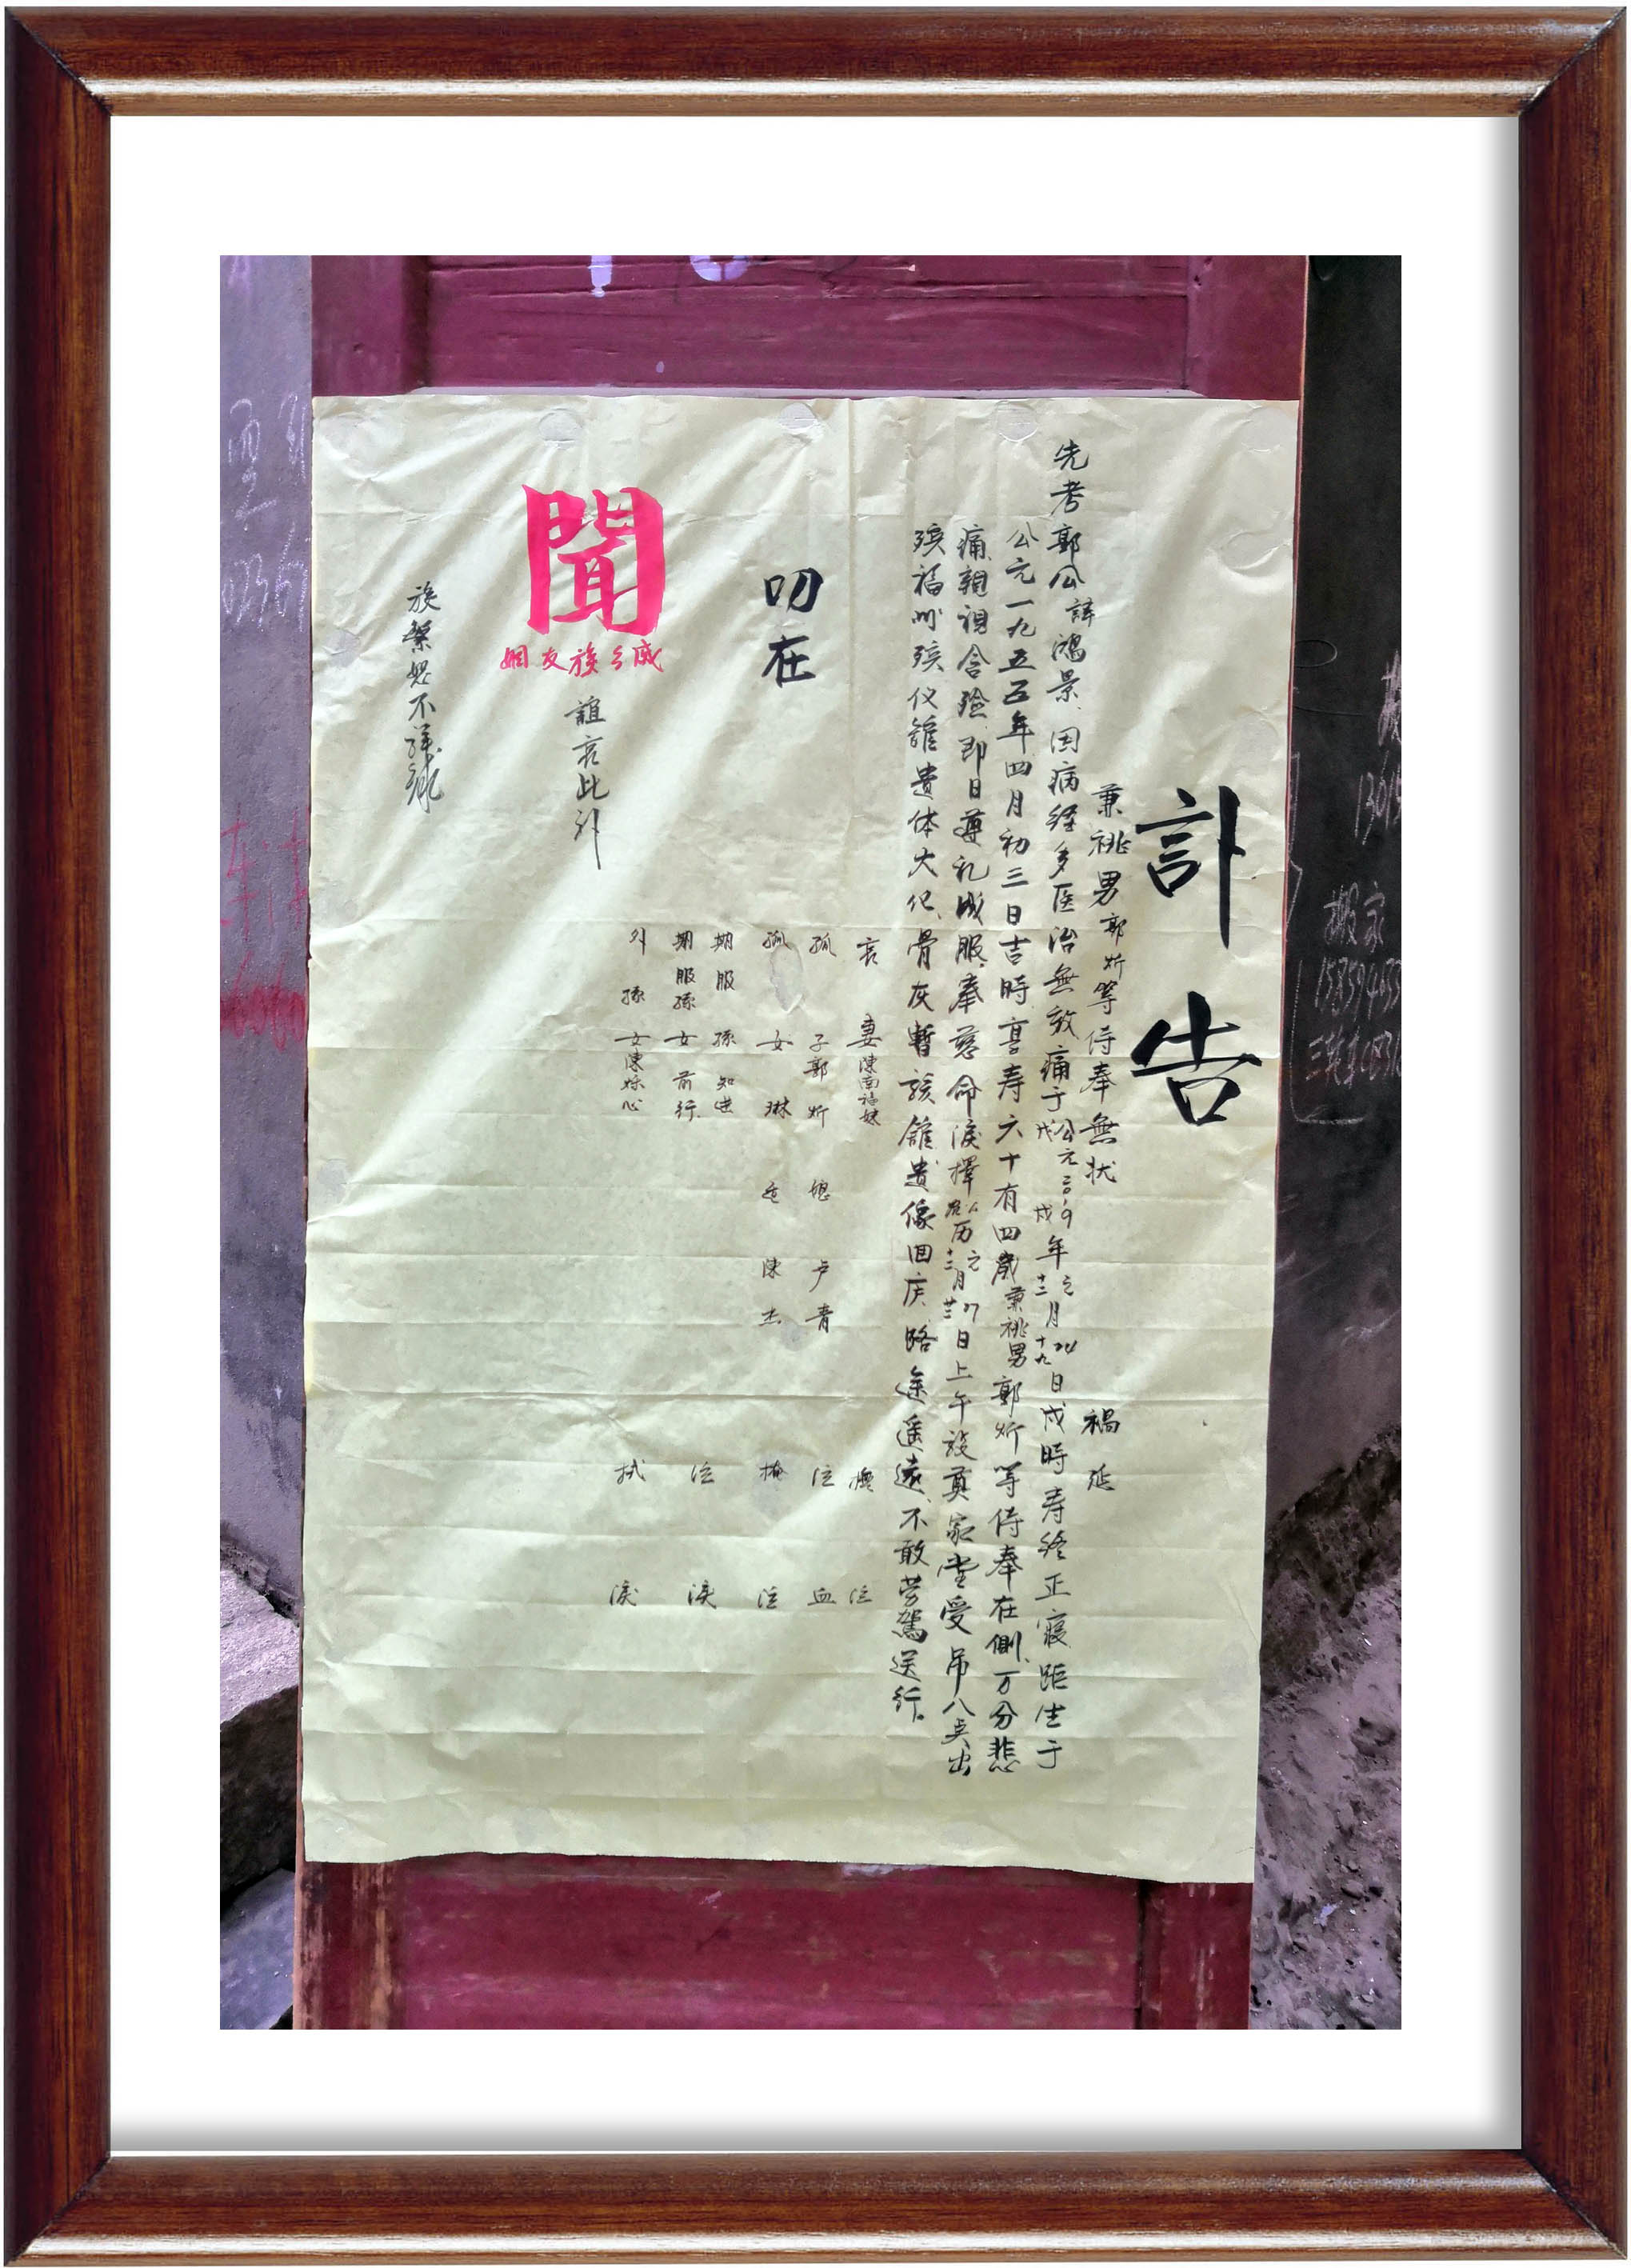 訃告
兼祧男郭炘等侍奉無状 禍延
先考郭公諱鴻景、因病经多医治無效痛于公元二〇一九戊戌年元十二月廿四十九日戌時寿终正寝距生于
公元一九五五年四月初三日吉時享寿六十有四歲兼祧男郭炘等侍奉在側、万分悲
痛、親視含殮、即日遵礼成服、奉慈命淚擇公历元月廿七日上午設奠家堂受吊八点出
殡福州殡仪舘遺体火化、骨灰暫 舘遺像回府、路途遥遠、不敢劳駕送行。
哀妻陳南福妹 泣
孤子郭炘 媳卢青 泣血
孤女琳 陳杰 掩泣
期服孫知進
期服孫女前行 泣淚
外孫女陳烁心 拭淚
叨在
聞
戚乡族友姻
誼哀此訃
族繁恕不祥錄
搬家